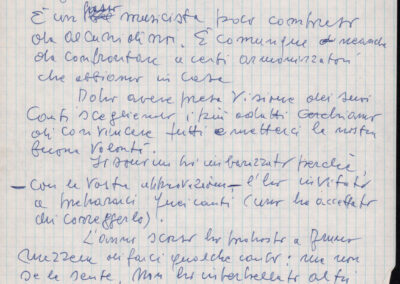 È un musicista poco compreso
da alcuni di noi. È comunque
da confrontare a certi armonizzatori
che abbiamo in casa
Dopo avere preso visione dei suoi
Canti sceglieremo i più adatti cercheremo
di convincere tutti e metterci la nostra
buona volontà.
Io sono imbarazzato perché,
– con la vostra approvazione – l'ho invitato
a prepararci canti (uno ha accettato
di correggerlo).
L'anno scorso ho proposto a
di farci qualche canto: ma non
se la sente. Non ho interpellato altri